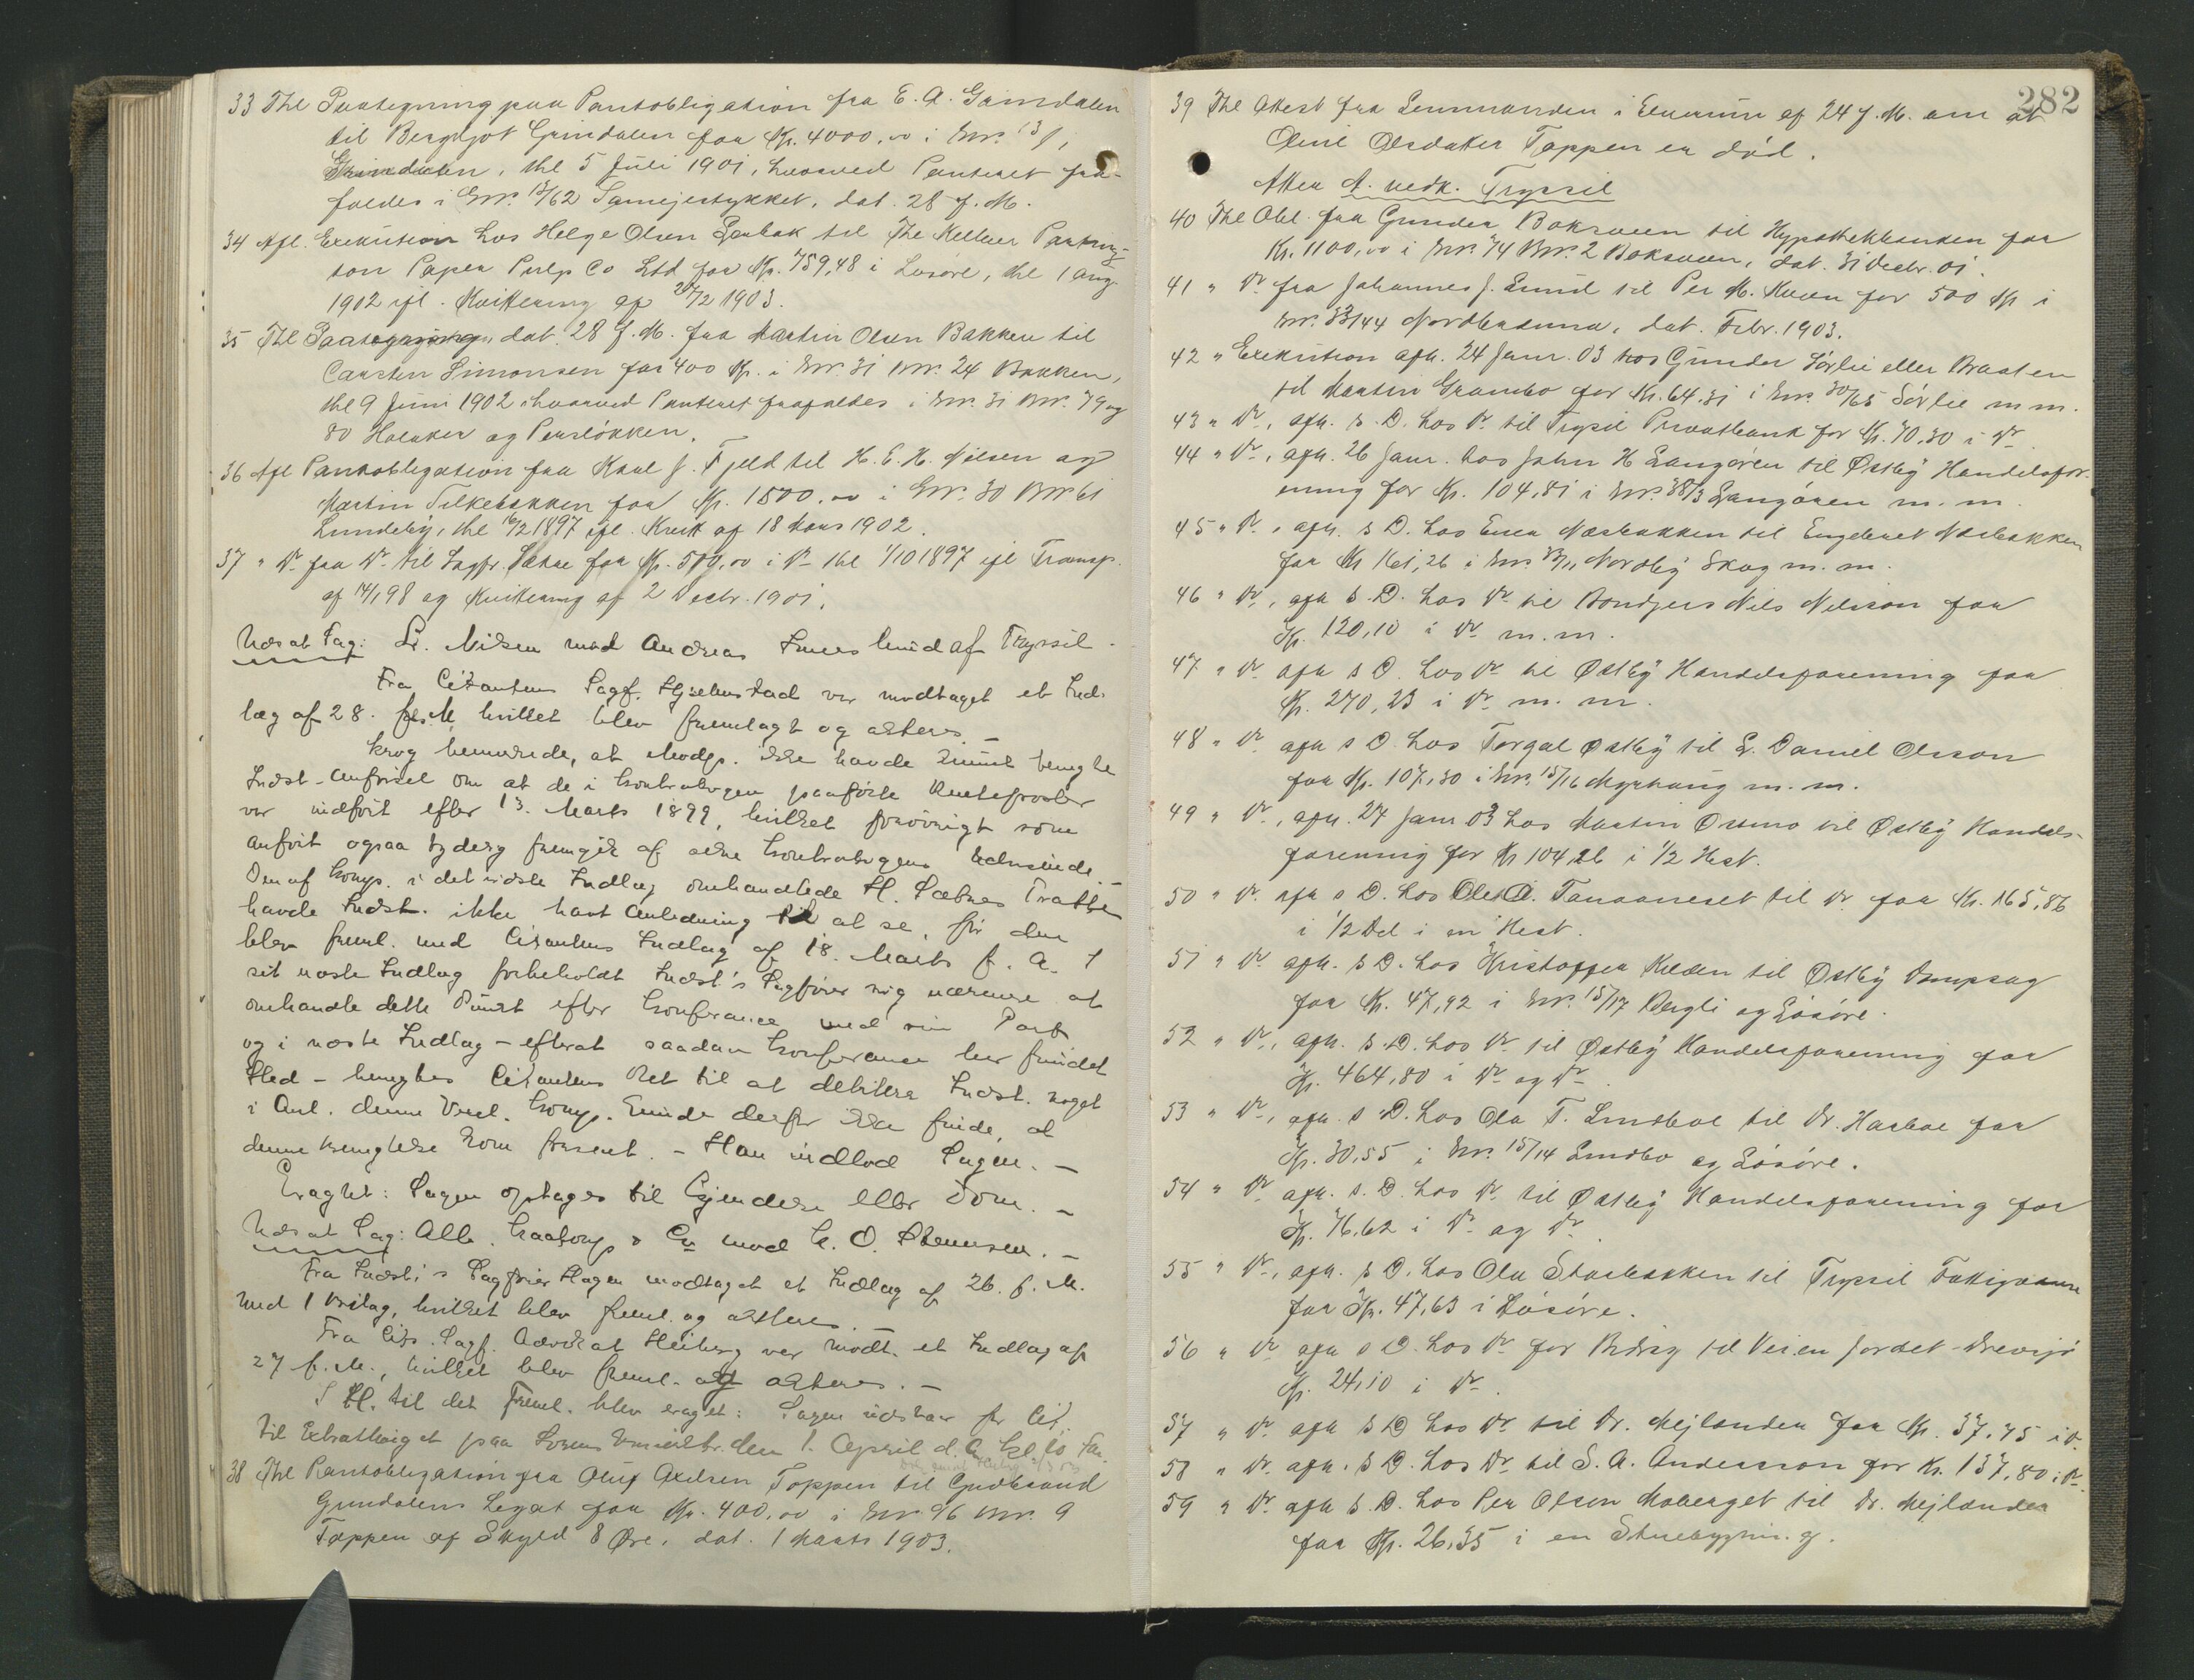 33 Thl Paategning paa Pantobligation fra E. A. Grindalen
til Bergljot Grindalen for Kr. 4000.00 i Gnr. 13/1,
Grindalen, thl 5 Juli 1901, hvorved Pantet fra-
faldes i Gnr. 13/62 Samejestykket, dat. 28 f. M.
34 Afl. Exekution hos Helge Olsen Lenbak til The Kellner Parting-
ton Paper Pulp Co Ltd for Kr. 759,48 i Løsøre, thl 1 Aug.
1902 ifl. Kvittering af 28/2 1903.
35 Thl Paategning, dat. 28 f. M. fra Martin Olsen Bakken til
Carsten Simonsen for 400 Kr. i Gnr. 31 Bnr. 24 Bakken,
thl 9 Juni 1902 hvorved Pantet frafaldes i Gnr. 31 Bnr. 79 og
80 Holaker og Persløkken.
36 Afl Pantobligation fra Karl J. Fjeld til H. E. H. Nilsen og
Martin Silkebækken for Kr. 1500.00 i Gnr. 30 Bnr. 61
Lundeby, thl 16/2 1897 ifl. Kvitt af 18 Mars 1902.
37 " Do fra Do til Sagfr. Sætre for Kr. 500,00 i Do thl 1/10 1897 ifl Transp.
af 14/1 98 og Kvittering af 2 Decbr. 1901.
Udsat Sag: L. Nilsen mod Andreas lund af Trysil.
Fra Citantens Sagf. Hjelmstad var modtaget et Ind-
læg af 28. f. M, hvilket blev fremlagt og akteres. —
Krog bemærkede, at Modp. ikke havde kunnet benegte
Indst. Anførsel om at de i Kontrabogen paaførte Renteposter
var indført efter 13. Marts 1899, hvilket forøvrigt som
anført ogsaa tydelig fremgik af selve Kontrabogens Udseende. —
Den af Komp. i det sidste Indlæg omhandlede H. Sætres Tratte
havde Indst. ikke havt Anledning til at se, før den
blev freml. med Citantens Indlæg af 18. Marts f. A. I
sit næste Indlæg forbeholdt Indst.'s Sagfører sig nærmere at
omhandle dette Punkt efter Konferance med sin Part
og i næste Indlæg – efterat saadan Konferance har fundet
Sted – benegtes Citantens Ret til at debitere Indst. noget
i Anl. denne Vexel. Komp. kunde derfor ikke finde, at
denne Benegtelse kom forsent. – Han indlod Sagen. —
Eragtet: Sagen optages til Kjendelse eller Dom. —
Udsat Sag: Alb. & Co mod K. O. . —
Fra Indst.'s Sagfører Hagen modtaget et Indlæg af 26. f. M.
med 1 Bilag, hvilket blev freml. og akteres. —
Fra Cits. Sagf. Advokat Heiberg var modt. et Indlæg af
27 f. M., hvilket blev freml. og akteres. —
I H. til det Freml. blev eragtet: Sagen udstaar for Cit.
til Extrathinget paa den 1. April d. A. kl. 10 Fm.
38 Thl Pantobligation fra Oluf Axelsen Toppen til Gudbrand
Grundalens Legat for Kr. 400,00 i Gnr. 96 Bnr. 9
Toppen af Skyld 8 Øre, dat. 1 Marts 1903.
282
39 Thl Attest fra Lensmanden i Elverum af 24 f. M. om at
Oline Olsdatter Toppen er død.
Atter A. vedk. Trysil
40 Thl Obl. fra Gunder Baksveen til Hypothekbanken for
Kr. 1100,00 i Gnr. 74 Bnr. 2 Baksveen, dat. 31 Decbr. 01.
41 " Do fra Johannes J. Lund til Per M. Kveen for 500 Kr i
Gnr. 33/44 , dat. Febr. 1903.
42 " Exekution afh. 24 Janr. 03 hos Gunder Sørlie eller Braaten
til Martin Grambo for Kr. 64,31 i Gnr. 30/65 Sørlie m m.
43 " Do, afh. s. D. hos Do til Trysil Privatbank for Kr. 70,30 i Do
44 " Do, afh. 26 Janr. hos John H Langøren til Østby Handelsfor-
ening for Kr. 104,81 i Gnr. 38/3 Langøren m. m.
45 " Do, afh. s D. hos Even Næsbakken til Engebret Næsbakken
for Kr 161,26 i Gnr. Nordby Skog m. m.
46 " Do, afh s. D. hos Do til Nils Nilsson for
Kr. 120,10 i Do m. m.
47 " Do afh s D. hos Do til Østby Handelsforening for
Kr. 270,23 i Do m. m.
48 " Do afh s D. hos Torgal Østby til L. Daniel Olsson
for Kr. 107,30 i Gnr. 15/16 Myrhaug m. m.
49 " Do, afh. 27 Janr 03 hos Martin Osmo til Østby Handels-
forening for Kr 104,26 i 1/2 Hest.
50 " Do afh s D. hos Ole A. Tanaaneset til Do for Kr. 165,86
i 1/2 Del i en Hest.
51 " Do afh. s D. hos Kristoffer Kilden til Østby Dampsag
for Kr. 47,92 i Gnr. 15/17 Bergli og Løsøre.
52 " Do, afh. s. D. hos Do til Østby Handelsforening for
Kr. 464,80 i Do og Do
53 " Do, afh. s. D. hos Ola T. Lindboe til Dr. Harboe for
Kr. 30,55 i Gnr. 15/14 Lindbo og Løsøre.
54 " Do afh. s. D. hos Do til Østby Handelsforening for
Kr. 76,62 i Do og Do.
55 " Do, afh. s D. hos Ola Storbakken til Trysil Fattigvæsen
for Kr. 47,63 i Løsøre.
56 " Do afh s D. hos Do for Bidrag til Veien Jordet-Drevsjø
Kr. 24,10 i Do.
57 " Do afh s D hos Do til Dr. Mejlænder for Kr. 37,75 i Do.
58 " Do afh. s D. hos Do til S. A. Andersson for Kr. 137,80 i Do.
59 " Do afh s. D. hos Per Olsen Moberget til Dr. Mejlænder
for Kr. 26,35 i en Stuebygning.